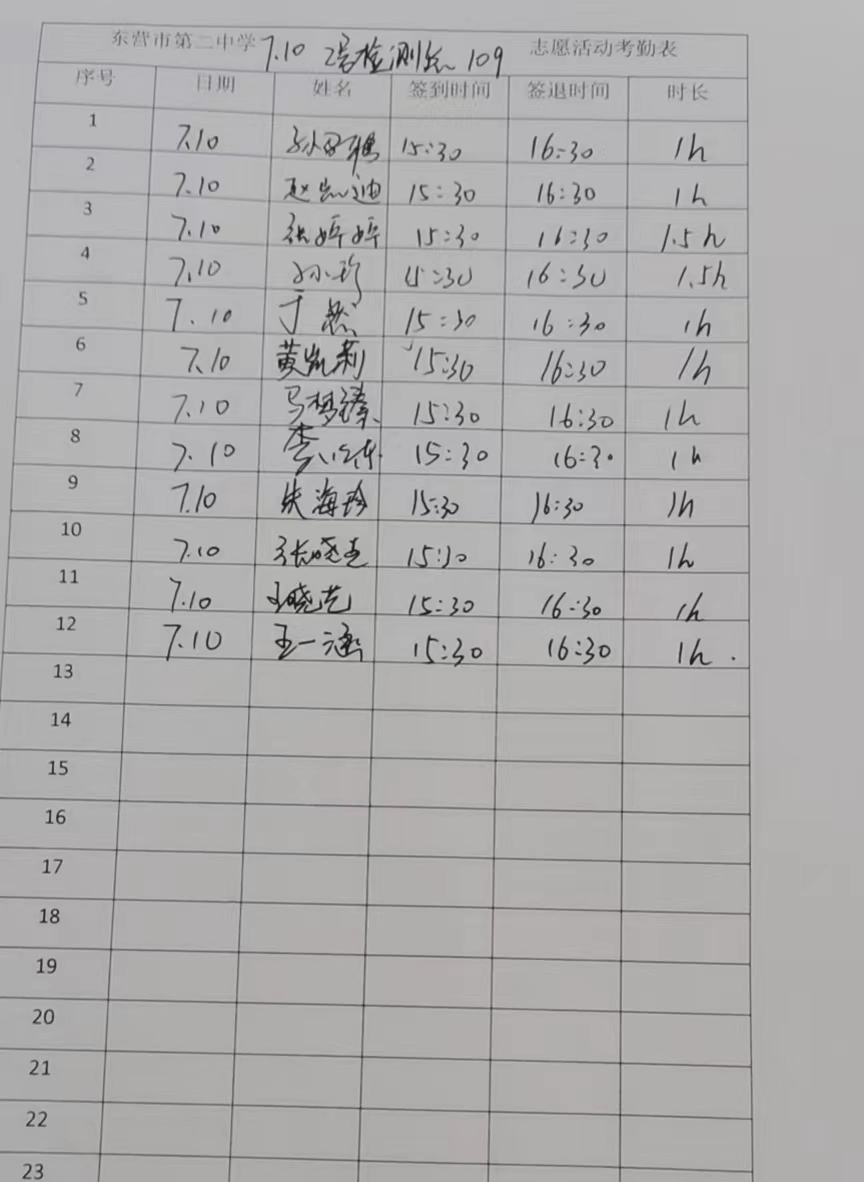 东营市第二中学 7.10 2号检测点 109 志愿活动考勤表
序号 日期 姓名 签到时间 签退时间 时长
1 7.10 15:30 16:30 1h
2 7.10 赵凯迪 15:30 16:30 1h
3 7.10 张婷婷 15:30 16:30 1.5h
4 7.10 孙珍 15:30 16:30 1.5h
5 7.10 于然 15:30 16:30 1h
6 7.10 黄凯莉 15:30 16:30 1h
7 7.10 马梦臻 15:30 16:30 1h
8 7.10 15:30 16:30 1h
9 7.10 朱海玲 15:30 16:30 1h
10 7.10 张晓 15:30 16:30 1h
11 7.10 王晓艺 15:30 16:30 1h
12 7.10 王一涵 15:30 16:30 1h.
13
14
15
16
17
18
19
20
21
22
23